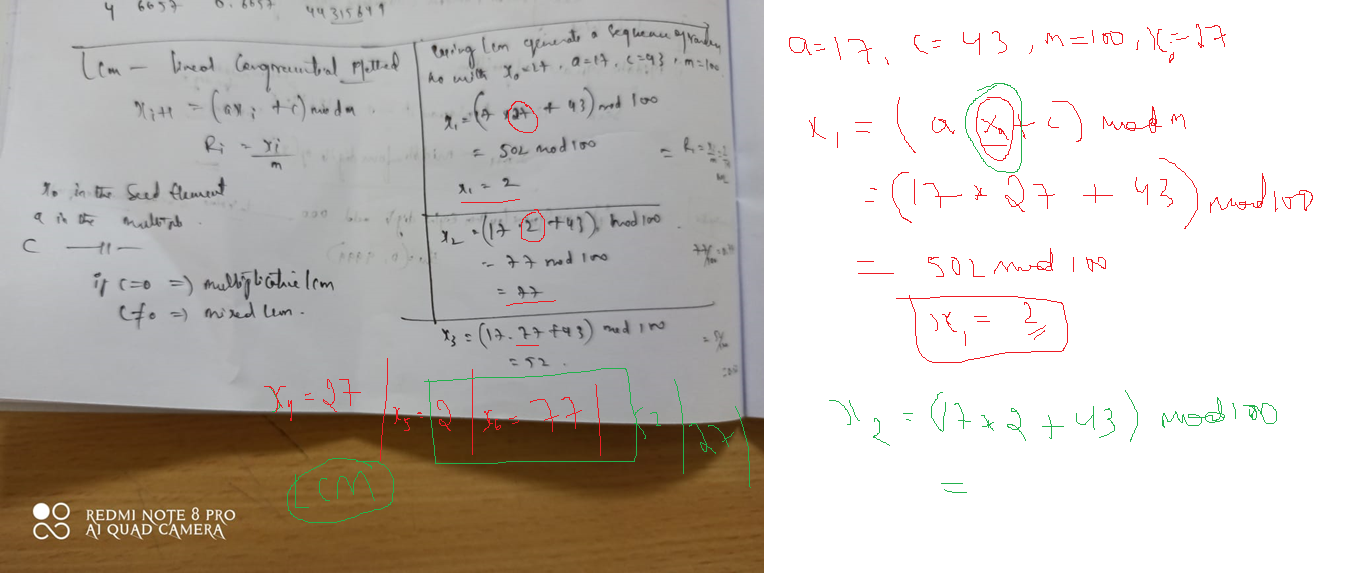 4 6657 0.6657 44315649
Lcm - Lineal Congruential Method
x_{i+1} = (ax_i + c) mod m.
R_i = x_i/m
x_0 is the Seed Element
a is the
C —||—
if c=0 => multiplicative lcm
C≠0 => mixed lcm.
using lcm generate a sequence of random
no with x_0=27, a=17, c=43, m=100
x_1 = (17 × 27 + 43) mod 100
= 502 mod 100
x_1 = 2
x_2 = (17 · 2 + 43) mod 100
= 77 mod 100
= 77
x_3 = (17 · 77 + 43) mod 100
= 52.
x_4 = 27 | x_5 = 2 | x_6 = 77 | 52 | 27 |
LCM
REDMI NOTE 8 PRO
AI QUAD CAMERA
a=17, c=43, m=100, x_0=27
x_1 = (a x_0 + c) mod m
= (17 * 27 + 43) mod 100
= 502 mod 100
x_1 = 2
x_2 = (17 * 2 + 43) mod 100
=